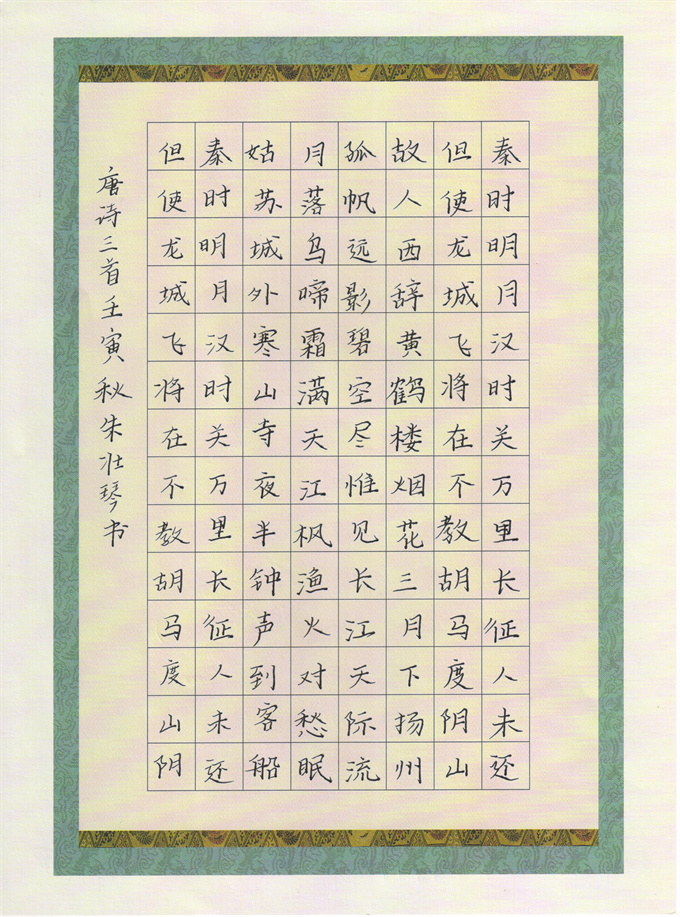 秦时明月汉时关万里长征人未还
但使龙城飞将在不教胡马度阴山
故人西辞黄鹤楼烟花三月下扬州
孤帆远影碧空尽惟见长江天际流
月落乌啼霜满天江枫渔火对愁眠
姑苏城外寒山寺夜半钟声到客船
秦时明月汉时关万里长征人未还
但使龙城飞将在不教胡马度山阴
唐诗三首壬寅秋朱壮琴书